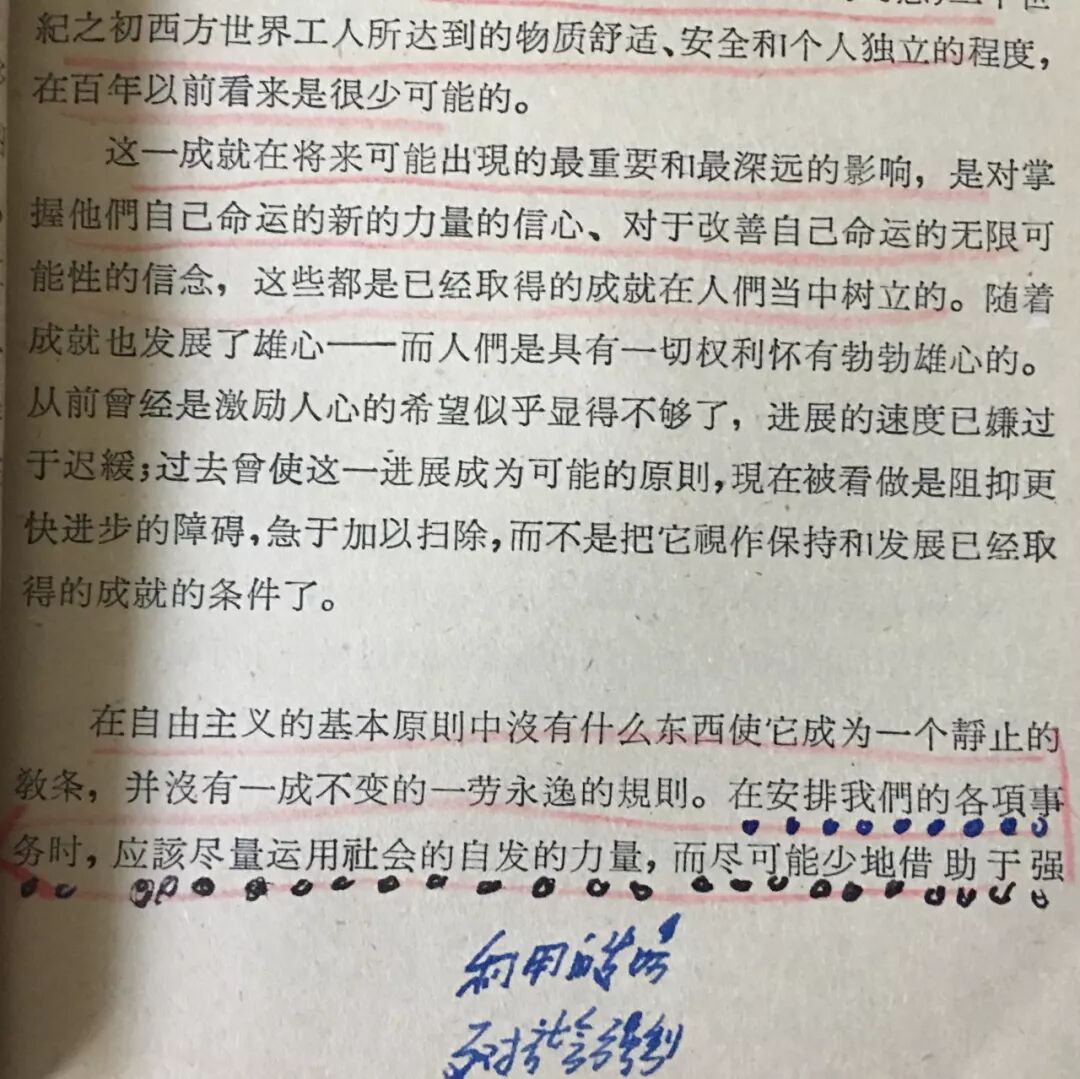 紀之初西方世界工人所达到的物质舒适、安全和个人独立的程度，
在百年以前看来是很少可能的。
这一成就在将来可能出現的最重要和最深远的影响，是对掌
握他們自己命运的新的力量的信心、对于改善自己命运的无限可
能性的信念，这些都是已经取得的成就在人們当中树立的。随着
成就也发展了雄心——而人們是具有一切权利怀有勃勃雄心的。
从前曾经是激励人心的希望似乎显得不够了，进展的速度已嫌过
于迟緩；过去曾使这一进展成为可能的原則，現在被看做是阻抑更
快进步的障碍，急于加以扫除，而不是把它視作保持和发展已经取
得的成就的条件了。
在自由主义的基本原則中沒有什么东西使它成为一个靜止的
教条，并沒有一成不变的一劳永逸的規則。在安排我們的各項事
务时，应該尽量运用社会的自发的力量，而尽可能少地借助于强
利用自
反对社会强制